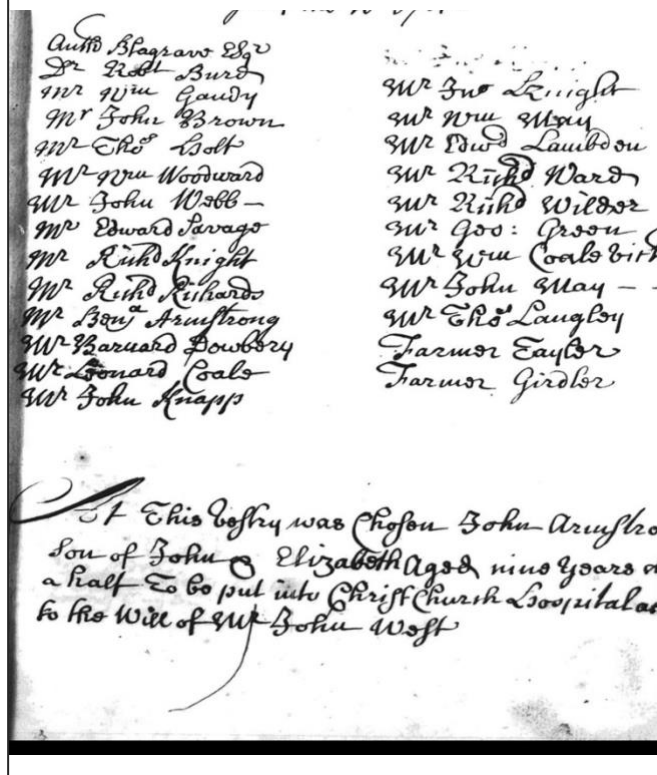 Antho Blagrave Esqr
Dr Robt Burd
Mr Wm Gandy
Mr John Brown
Mr Thos Holt
Mr Wm Woodward
Mr John Webb –
Mr Edward Savage
Mr Richd Knight
Mr Richd Richards
Mr Benja Armstrong
Mr Barnard Dewbery
Mr Leonard Coale
Mr John Knapp
Mr Jno Knight
Mr Wm May
Mr Edwd Lambden
Mr Richd Ward
Mr Richd Wilder
Mr Geo: Green
Mr Wm Coale
Mr John May – –
Mr Thos Langley
Farmer Tayler
Farmer Girdler
At This Vestry was Chosen John Armstro
Son of John & Elizabeth Aged nine Years
a half To be put into Christ Church Hospital
to the Will of Mr John West